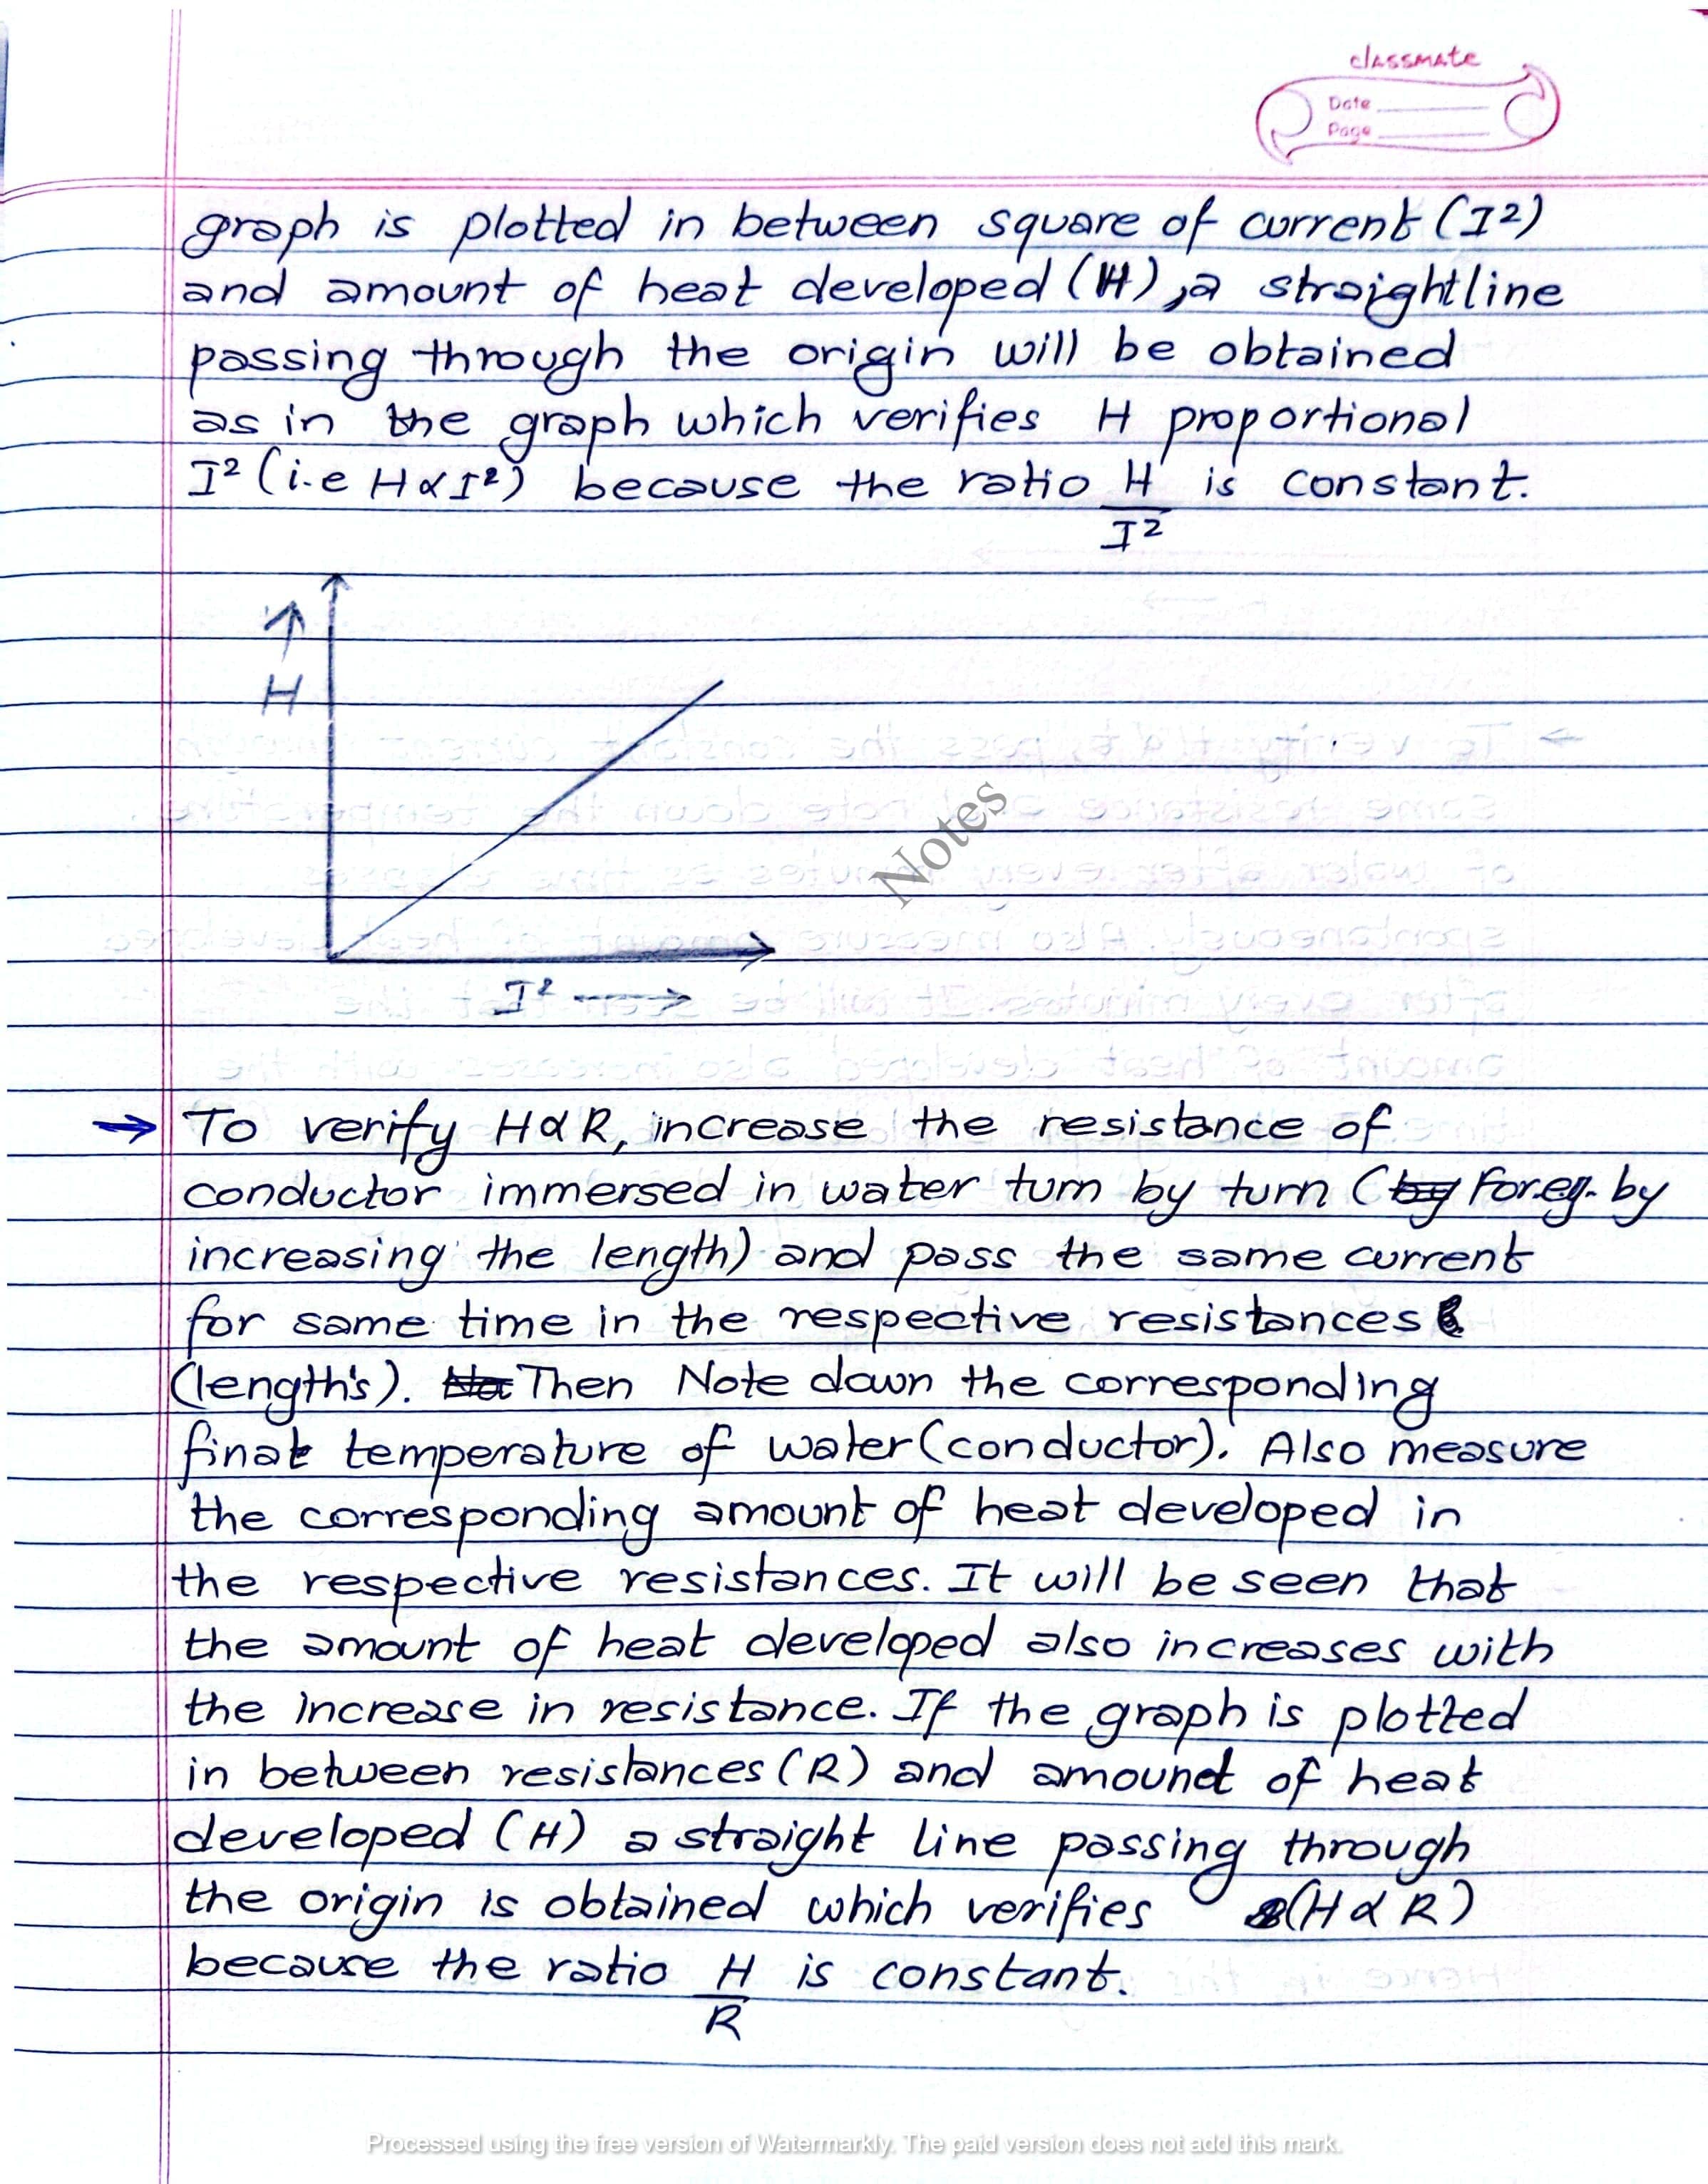 classmate
Date
Page
graph is plotted in between square of current (I²)
and amount of heat developed (H), a straightline
passing through the origin will be obtained
as in the graph which verifies H proportional
I² (i.e H∝I²) because the ratio H/I² is constant.
↑
H
Notes
I² →
→ To verify H∝R, increase the resistance of
conductor immersed in water turn by turn (by For.eg. by
increasing the length) and pass the same current
for same time in the respective resistances
(length's). Then Note down the corresponding
final temperature of water (conductor). Also measure
the corresponding amount of heat developed in
the respective resistances. It will be seen that
the amount of heat developed also increases with
the increase in resistance. If the graph is plotted
in between resistances (R) and amount of heat
developed (H) a straight line passing through
the origin is obtained which verifies (H∝R)
because the ratio H/R is constant.
Processed using the free version of Watermarkly. The paid version does not add this mark.